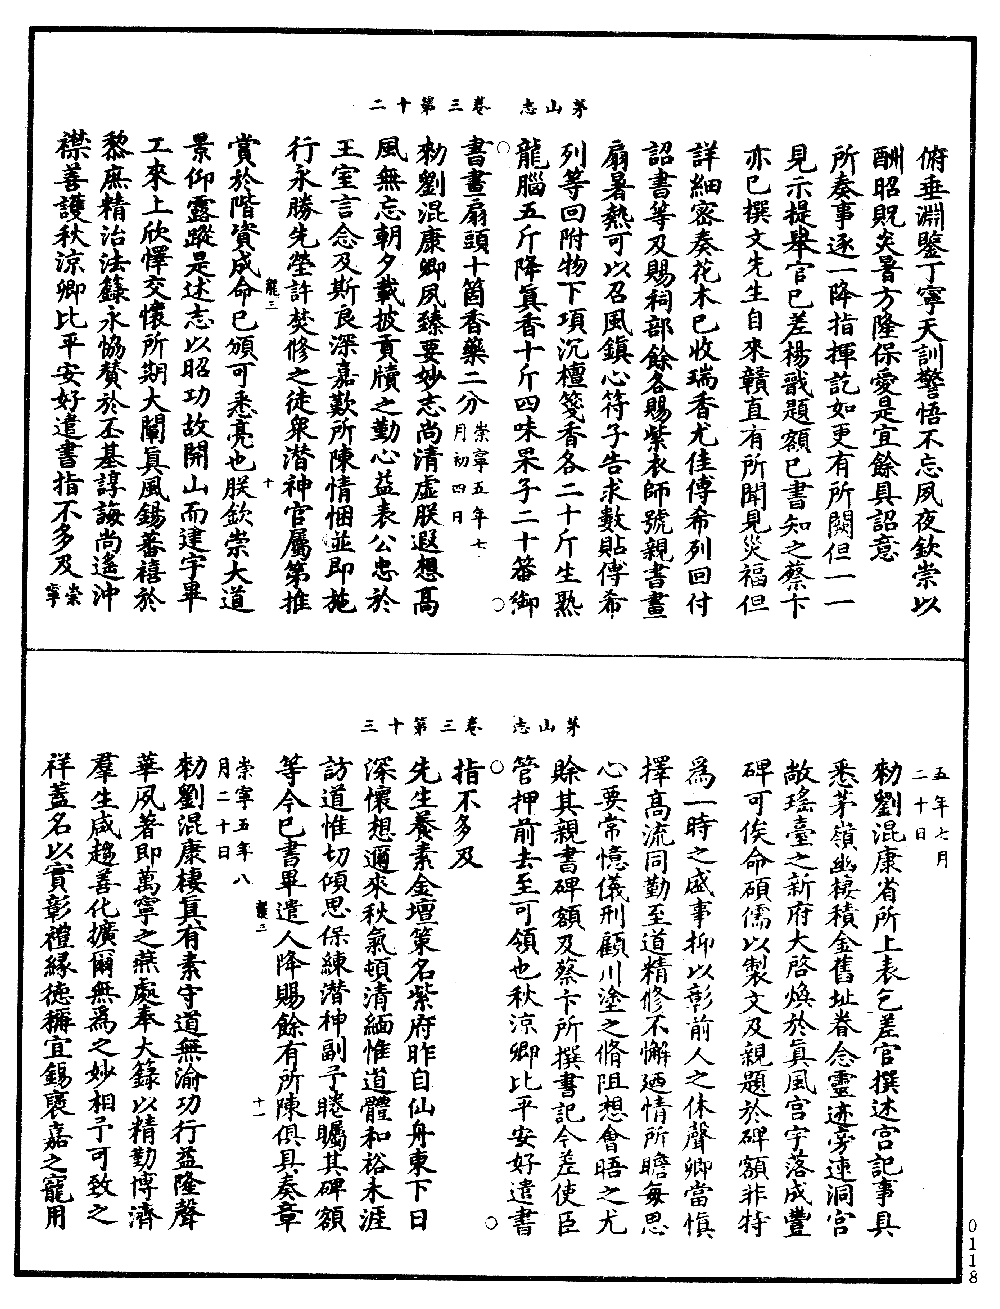 茅山志　卷三第十二
俯垂淵鑒丁寧天訓警悟不忘夙夜欽崇以
酬昭貺炎暑方隆保愛是宜餘具詔意
所奏事逐一降指揮訖如更有所闕但一一
見示提舉官已差楊戩題額已書知之蔡卞
亦已撰文先生自來贛直有所聞見災福但
詳細密奏花木已收瑞香尤佳傳希列回付
詔書等及賜祠部餘各賜紫衣師號親書畫
扇暑熱可以召風鎮心符子告求數貼傳希
列等回附物下項沉檀箋香各二十斤生熟
龍腦五斤降真香十斤四味果子二十簬御
書畫扇頭十箇香藥二分崇寧五年七
月初四日
勑劉混康卿夙臻要妙志尚清虛朕遐想高
風無忘朝夕載披貢牘之勤心益表公忠於
王室言念及斯良深嘉歎所陳情悃並即施
行永勝先塋許焚修之徒衆潜神官屬第推
賞於階資成命已頒可悉亮也朕欽崇大道
景仰露蹤是述志以昭功故開山而建宇畢
工來上欣懌交懷所期大闡真風錫蕃禧於
黎庶精治法籙永恊贊於丕基諄誨尚遙沖
襟善護秋涼卿比平安好遣書指不多及崇
寧
龍三
十
茅山志　卷三第十三
五年七月
二十日
勑劉混康省所上表乞差官撰述宮記事具
悉茅嶺幽棲積金舊址眷念靈迹旁連洞宮
敞瑤臺之新府大啓煥於真風宮宇落成豐
碑可俟命碩儒以製文及親題於碑額非特
爲一時之盛事抑以彰前人之休聲卿當愼
擇高流同勤至道精修不懈廼情所瞻每思
心要常憶儀刑顧川塗之脩阻想會晤之尤
賒其親書碑額及蔡卞所撰書記今差使臣
管押前去至可領也秋涼卿比平安好遣書
指不多及
先生養素金壇策名紫府昨自仙舟東下日
深懷想邇來秋氣頓清緬惟道體和裕未涯
訪道惟切傾思保練潜神副予睠矚其碑額
等今已書畢遣人降賜餘有所陳俱具奏章
崇寧五年八
月二十日
勑劉混康棲真有素守道無渝功行益隆聲
華夙著即萬寧之燕處奉大籙以精勤博濟
羣生咸趍善化擴爾無爲之妙相予可致之
祥蓋名以實彰禮緣德稱宜錫襃嘉之寵用
龍三
十一
0118